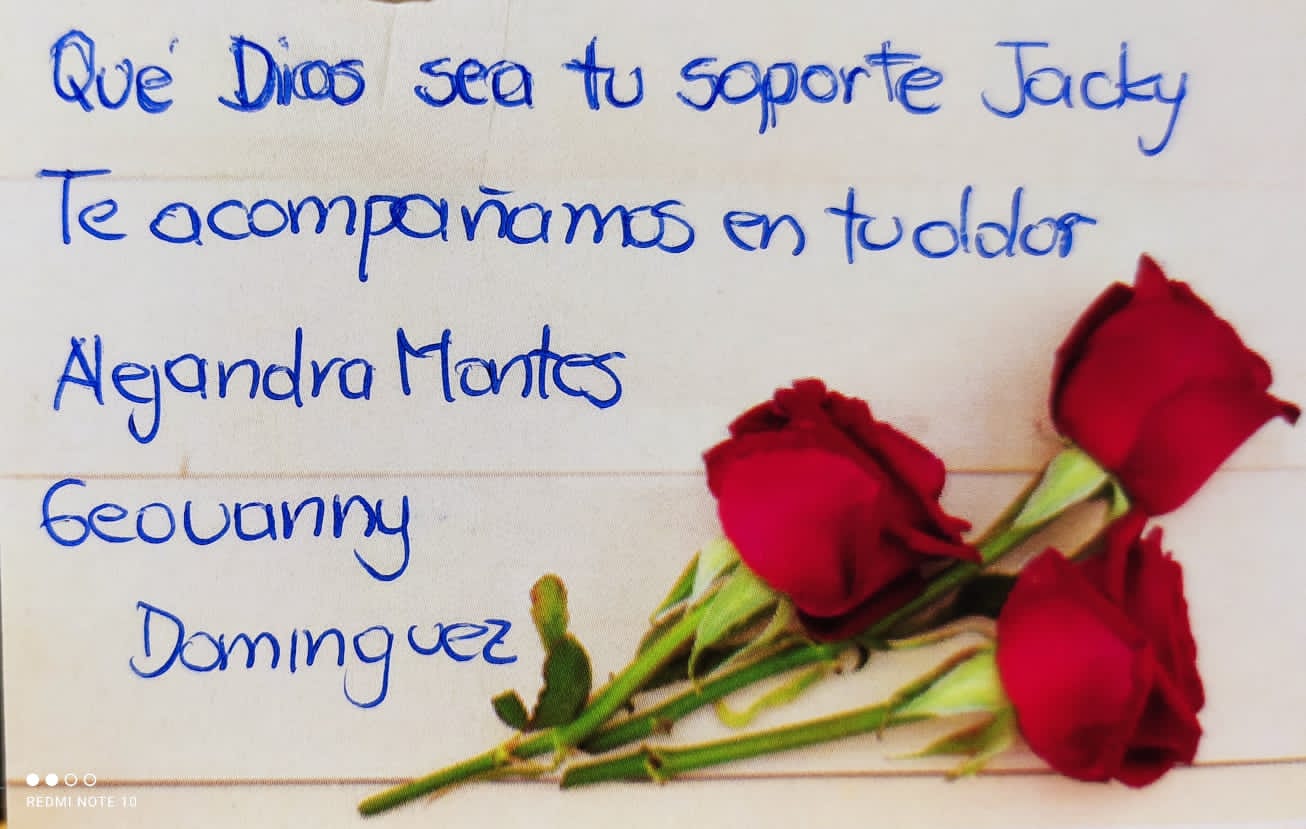 Qué Dios sea tu soporte Jacky
Te acompañamos en tu dolor
Alejandra Montes
Geovanny
Dominguez
REDMI NOTE 10